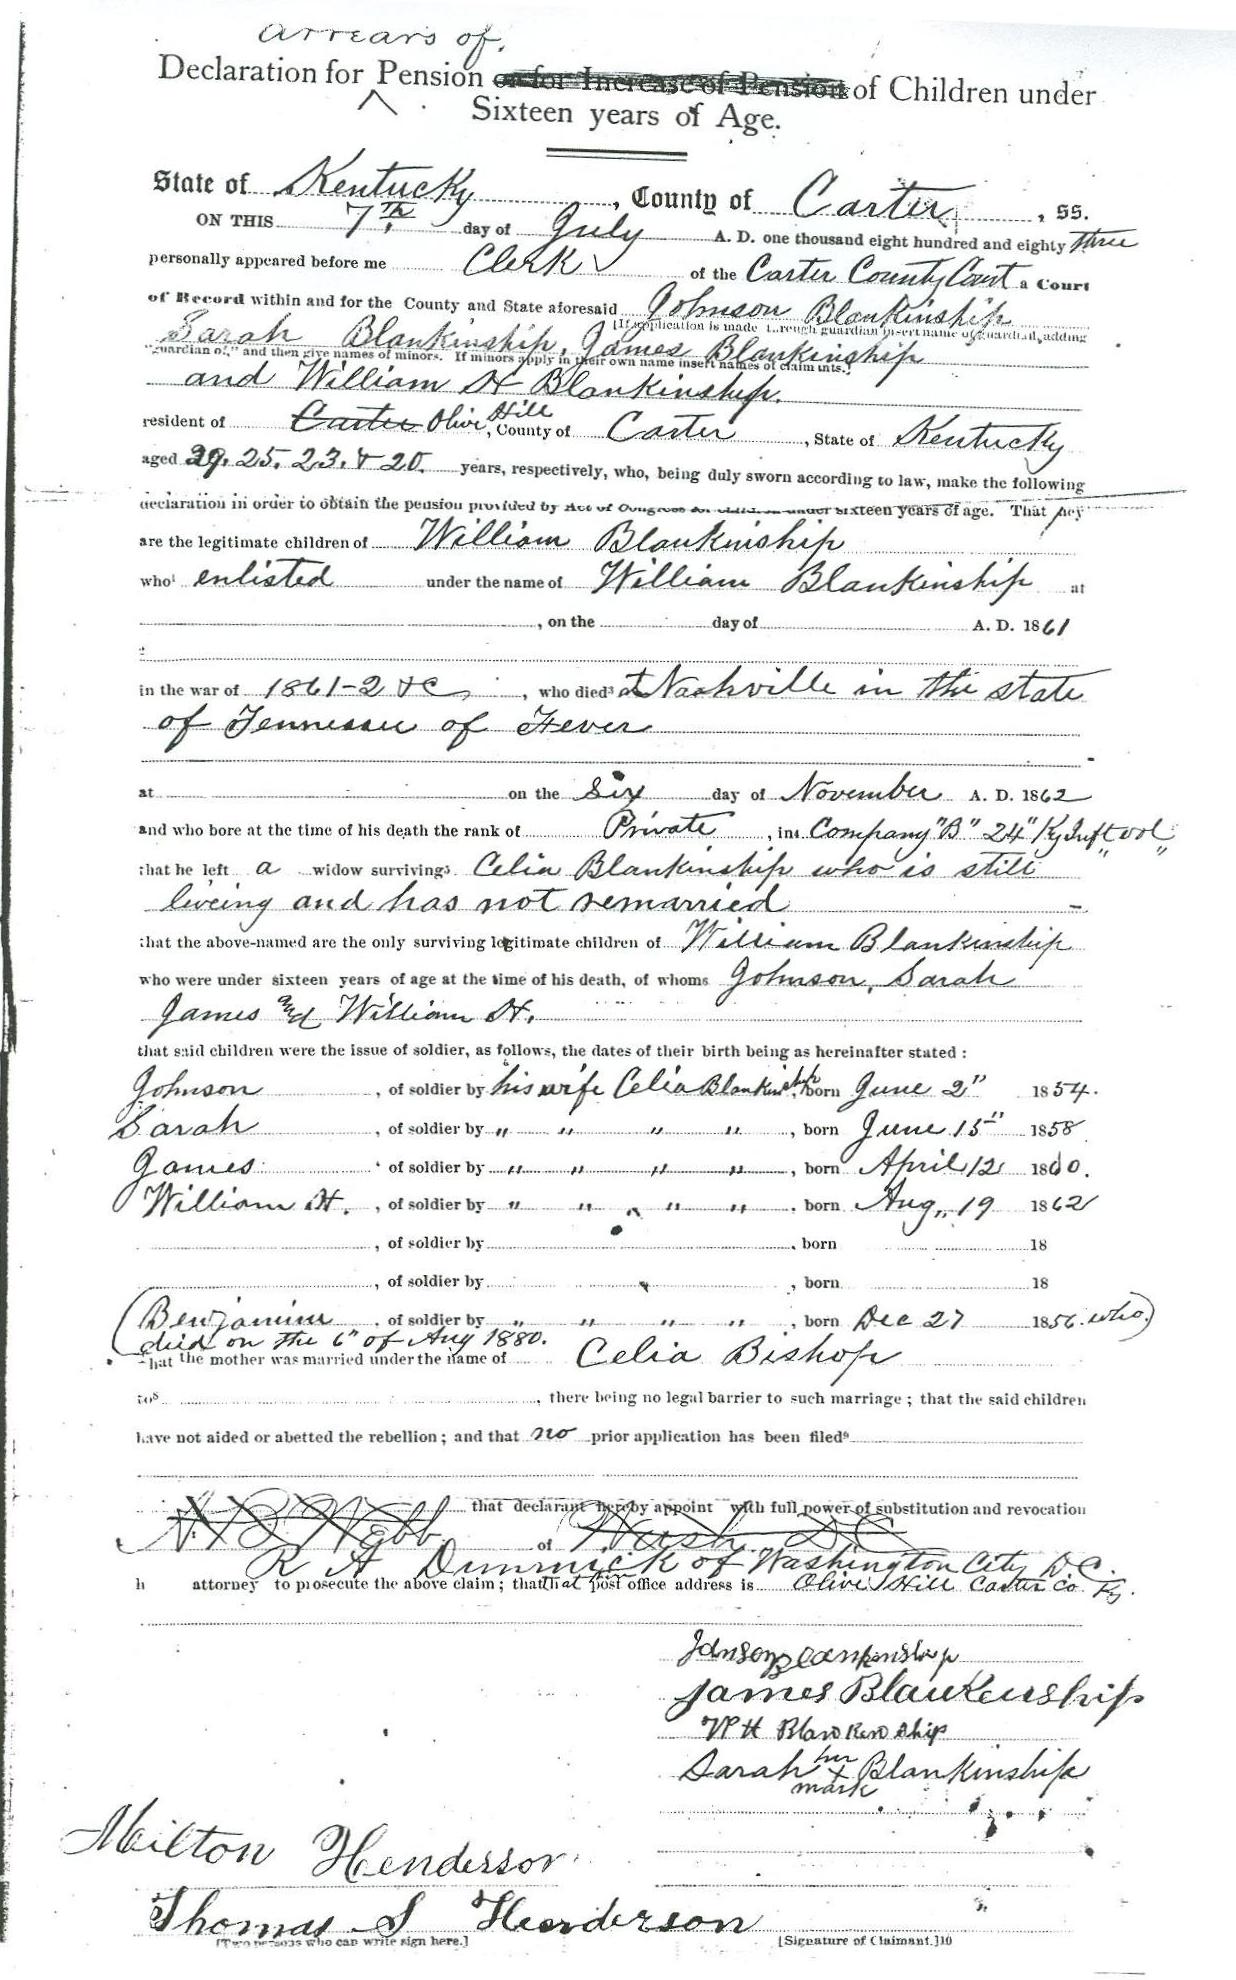 arrears of
Declaration for Pension or for Increase of Pension of Children under
Sixteen years of Age.
State of Kentucky, County of Carter, ss.
ON THIS 7th day of July A. D. one thousand eight hundred and eighty three
personally appeared before me Clerk of the Carter County Court a Court
of Record within and for the County and State aforesaid Johnson Blankinship
[If application is made through guardian insert name of guardian, adding
Sarah Blankinship, James Blankinship
"guardian of," and then give names of minors. If minors apply in their own name insert names of claimants.]
and William H Blankinship.
resident of Carter Olive Hill, County of Carter, State of Kentucky
aged 29. 25. 23. & 20. years, respectively, who, being duly sworn according to law, make the following
declaration in order to obtain the pension provided by Act of Congress for children under sixteen years of age. That they
are the legitimate children of William Blankinship
who enlisted under the name of William Blankinship at
, on the day of A. D. 1861
in the war of 1861-2 &c, who died at Nashville in the state
of Tennessee of Fever
at on the Six day of November A. D. 1862
and who bore at the time of his death the rank of Private, in Company "B" 24" Ky Inft vol"
that he left a widow surviving Celia Blankinship who is still
liveing and has not remarried
that the above-named are the only surviving legitimate children of William Blankinship
who were under sixteen years of age at the time of his death, of whom Johnson, Sarah
James and William H.
that said children were the issue of soldier, as follows, the dates of their birth being as hereinafter stated:
Johnson, of soldier by his wife Celia Blankinship, born June 2" 1854.
Sarah, of soldier by " " " ", born June 15" 1858
James of soldier by " " " ", born April 12 1860.
William H., of soldier by " " " ", born Aug 19 1862
, of soldier by , born 18
, of soldier by , born 18
(Benjamin, of soldier by " " " ", born Dec 27 1856. who)
died on the 6" of Aug 1880.
That the mother was married under the name of Celia Bishop
to , there being no legal barrier to such marriage; that the said children
have not aided or abetted the rebellion; and that no prior application has been filed
that declarant hereby appoint with full power of substitution and revocation
Webb of Wash D C
R A Dimmick of Washington City D.C.
h attorney to prosecute the above claim; that post office address is Olive Hill Carter Co. Ky.
Jonson Blankenship
James Blankenship
W H Blankenship
Sarah her x mark Blankinship
Milton Henderson
Thomas S Henderson
[Two persons who can write sign here.] [Signature of Claimant.]10